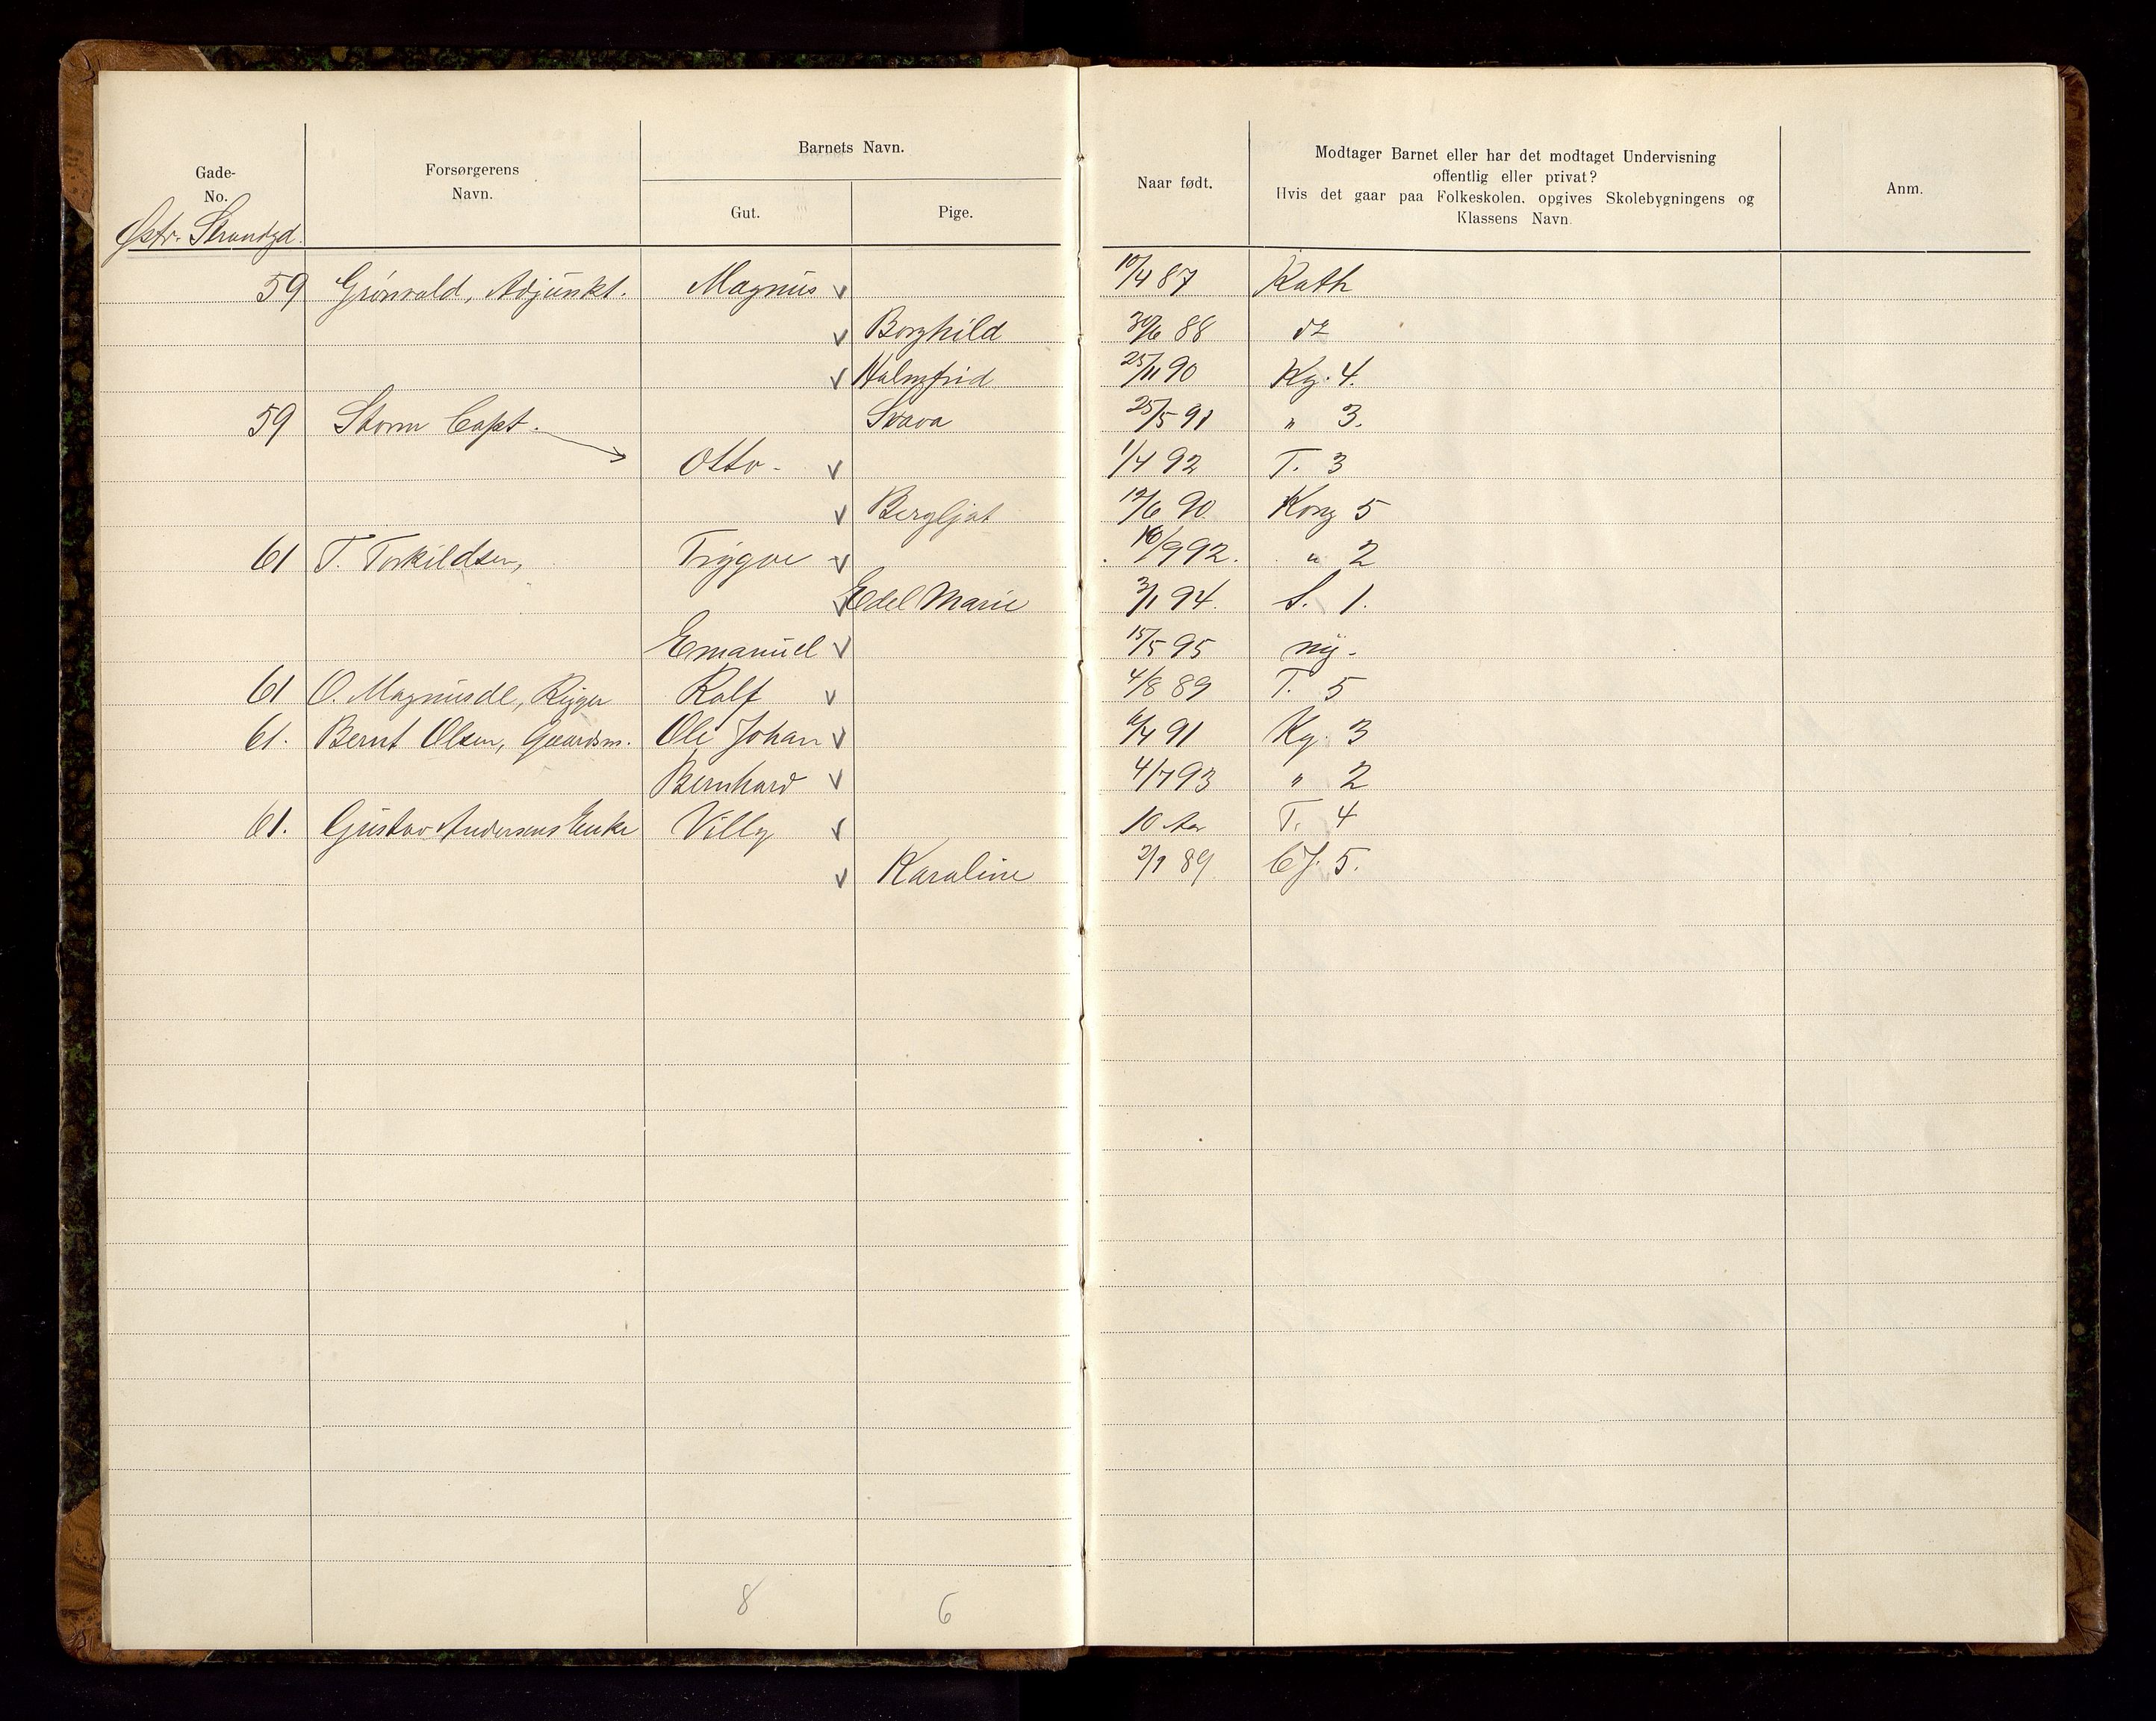 Gade-
No.
Forsørgerens
Navn.
Barnets Navn.
Gut.
Pige.
Naar født.
Modtager Barnet eller har det modtaget Undervisning
offentlig eller privat?
Hvis det gaar paa Folkeskolen, opgives Skolebygningens og
Klassens Navn.
Anm.
Østr. Strandgd.
59 Grønvold, Adjunkt. Magnus v 10/4 87 Kath
v Borghild 30/6 88 do
v Holmfrid 25/11 90 Kg. 4.
59 Storm Capt. Svava 25/5 91 " 3.
Otto - v 1/4 92 T. 3
v Bergljot 12/6 90 Kong 5
61 T. Torkildsen, Trygve v 10/9 92. " 2
v Edel Marie 3/1 94. S. 1.
Emanuel v 15/5 95 ny.
61 O. Magnusdl, Rigger Ralf v 4/8 89 T. 5
61. Bernt Olsen, Gaardsm. Ole Johan v 91 Kg. 3
Bernhard v 4/7 93 " 2
61. Gustav Andersens Enke Villy v 10 Aar T. 4
v Karoline 2/9 89 5.
8
6